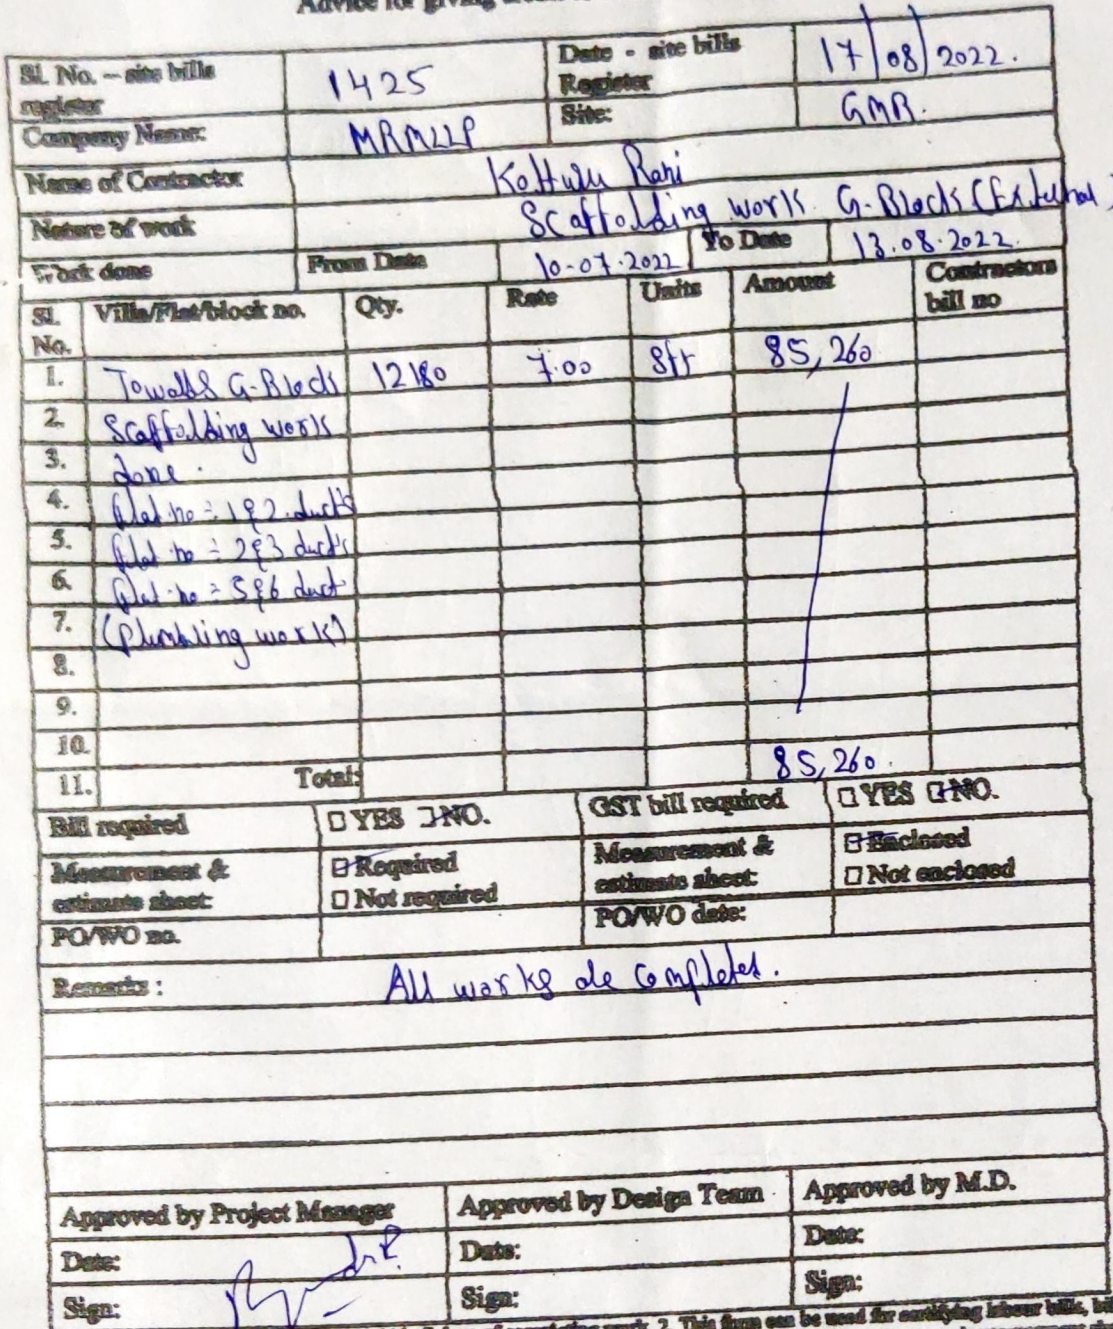 Advice for giving
Sl. No. – site bills register 1425 Date - site bills Register 17/08/2022.
Company Name: MRMLLP Site: GMR.
Name of Contractor Kotturu Rani
Nature of work Scaffolding work G-Block (External
Work done From Date 10-07-2022 To Date 13.08.2022.
Sl. No. Villa/Flat/block no. Qty. Rate Units Amount Contractors bill no
1. Towards G-Block 12180 7.00 Sft 85,260
2. Scaffolding work
3. done.
4. Flat no = 1 & 2 ducts
5. Flat no = 2 & 3 ducts
6. Flat no = 5 & 6 duct
7. (Plumbing work)
8.
9.
10.
11. Total: 85,260.
Bill required □ YES □ NO. GST bill required □ YES □ NO.
Measurement & estimate sheet: □ Required □ Not required Measurement & estimate sheet: □ Enclosed □ Not enclosed
PO/WO no. PO/WO date:
Remarks : All works de Completed.
Approved by Project Manager Approved by Design Team Approved by M.D.
Date: Date: Date:
Sign: Sign: Sign:
work. 2. This form can be used for certifying labour bills,